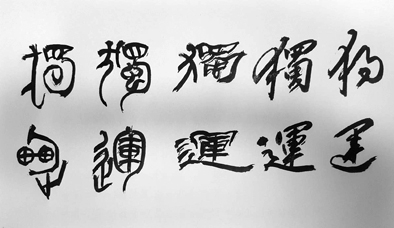 獨獨獨獨獨
運運運運運